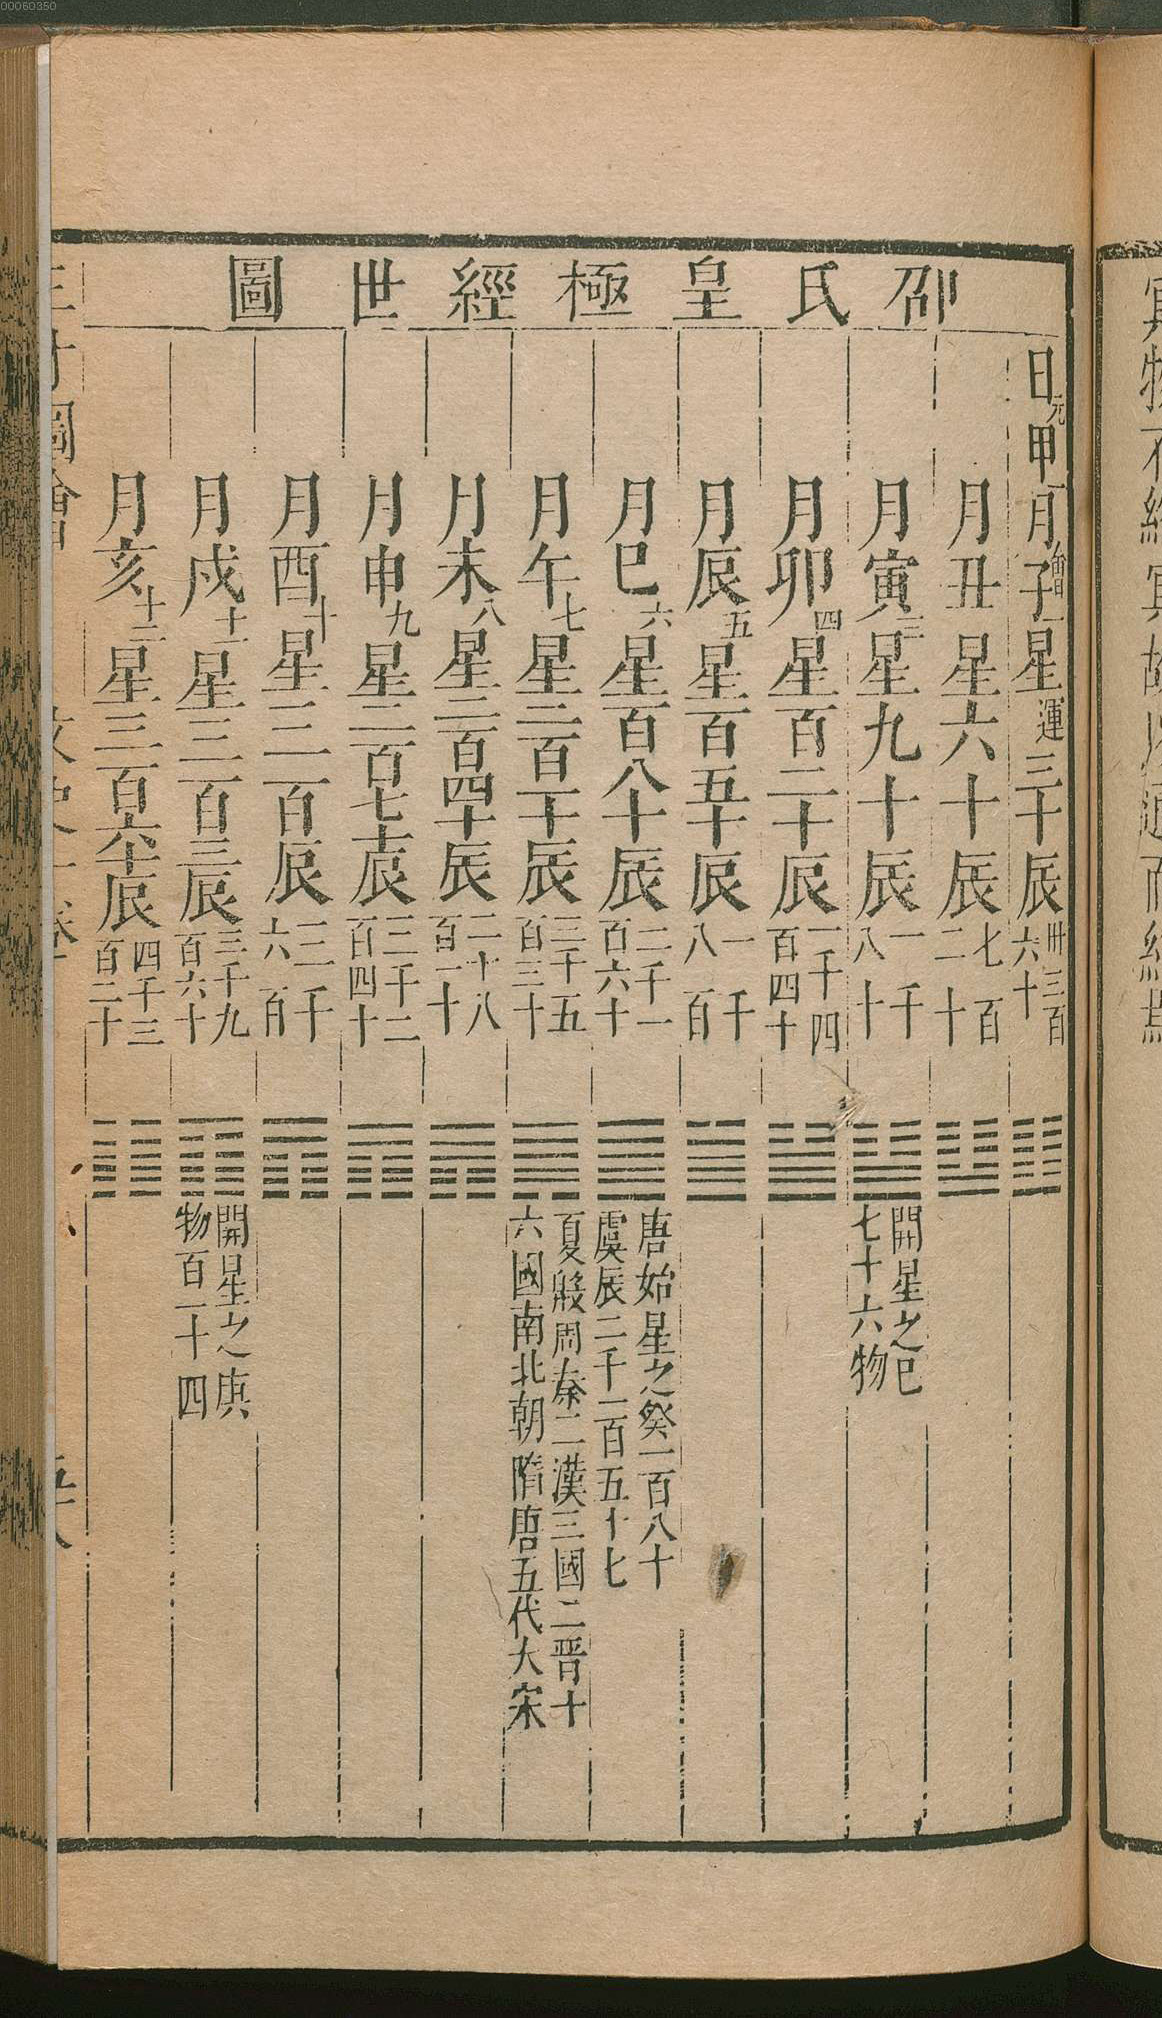 00060350
邵氏皇極經世圖
日元甲一月會子一星運三十辰卅三百六十
月丑星六十辰七百二十
月寅三星九十辰一千八十 開星之巳七十六物
月卯四星百二十辰一千四百四十
月辰五星百五十辰一千八百
月巳六星百八十辰二千一百六十 唐始星之癸一百八十虞辰二千一百五十七
月午七星二百一十辰二千五百三十 夏殷周秦二漢三國二晋十六國南北朝隋唐五代大宋
月未八星二百四十辰二千八百一十
月申九星二百七十辰三千二百四十
月酉十星三百辰三千六百
月戌十一星三百三辰三千九百六十 開星之庚物百一十四
月亥十二星三百六十辰四千三百二十
三才圖會